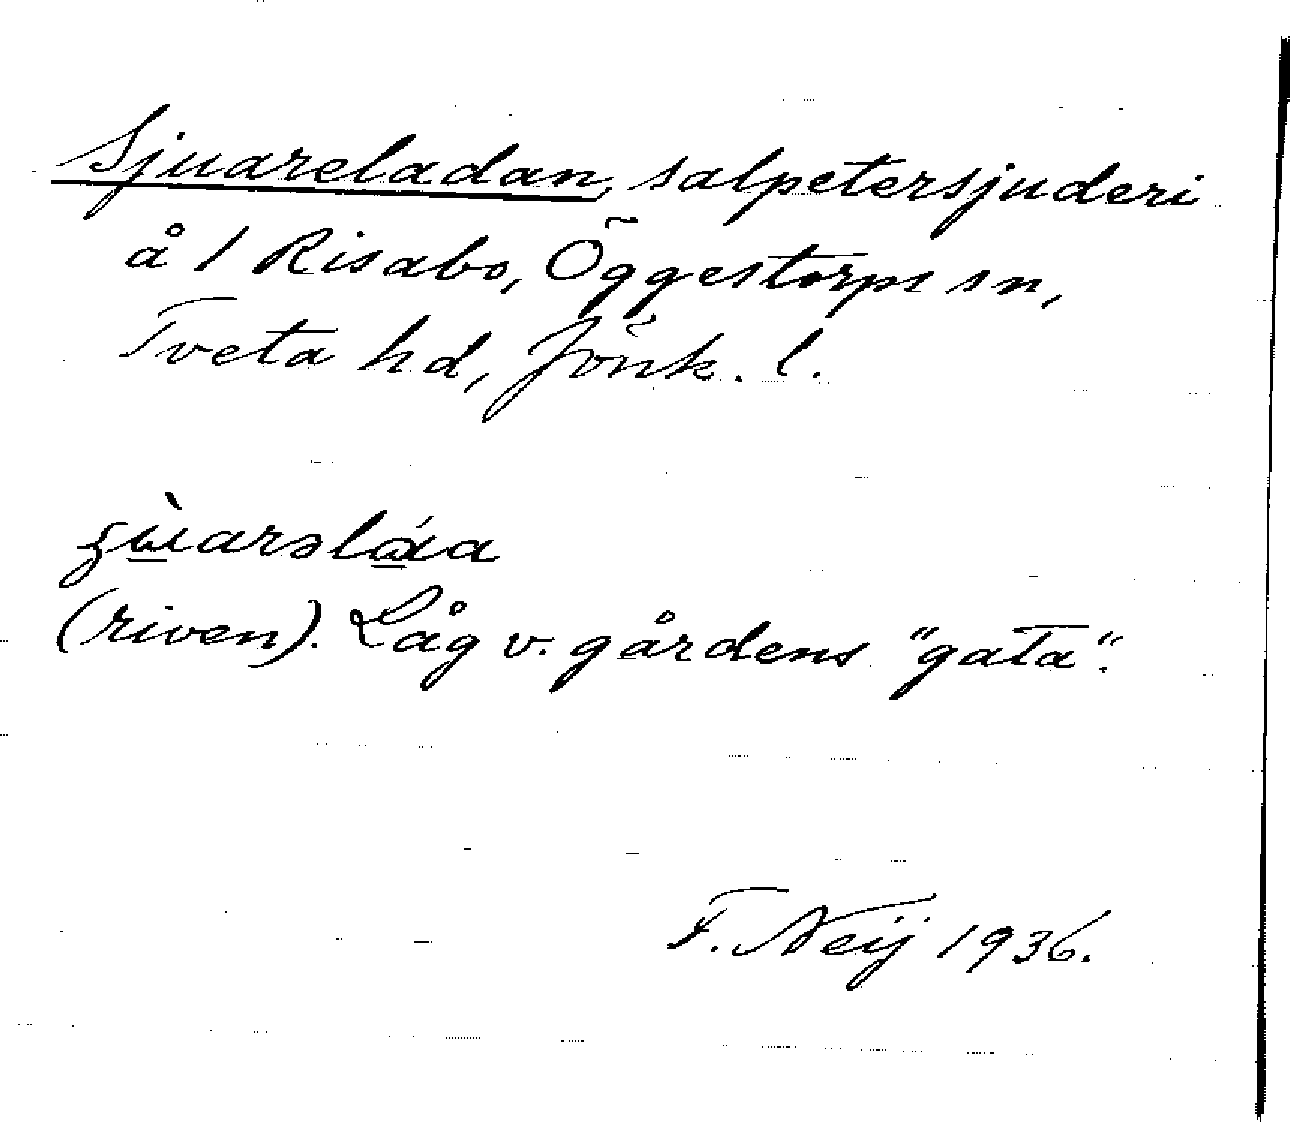 Sjuareladan, salpetersjuderi
å 1 Risabo, Öggestorps sn,
Tveta hd, Jönk. l.
(riven). Låg v. gårdens "gata".
F. Neij 1936.